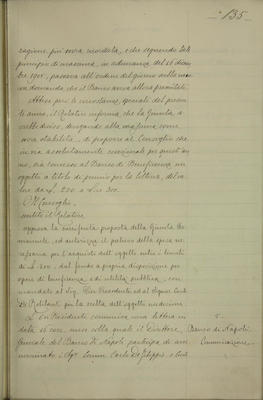 135
ragione, più sopra ricordata, e che seguendo tale
principio di massima, in adunanza del 16 dicem
bre 1901, passava all'ordine del giorno sulla nuo
va domanda che il Banco aveva allora presentata.
Attese però le circostanze speciali del presen
te anno, il Relatore informa che la Giunta a
vrebbe deciso, derogando alla massima come
sopra stabilita, di proporre al Consiglio che
in via assolutamente eccezionale per quest'an
no, sia concesso al Banco di Beneficenza un
oggetto a titolo di premio per la lotteria, del va
lore da L. 200 a Lire 300.
Il Consiglio
sentito il Relatore
approva la suriferita proposta della Giunta Per
manente, ed autorizza il prelievo della spesa ne
cessaria per l'acquisto dell'oggetto entro i limiti
di L. 300, dal fondo a propria disposizione per
opere di beneficenza e di utilità pubblica, con
mandato al Sig. Vice Presidente ed al Signor Conte
per la scelta dell'oggetto medesimo.
Il Presidente comunica una lettera in
data 16 corr. mese colla quale il Direttore
Generale del Banco di Napoli partecipa di aver
nominato i Sigri Comm. Carlo De Filippis e
Banco di Napoli
Comunicazione